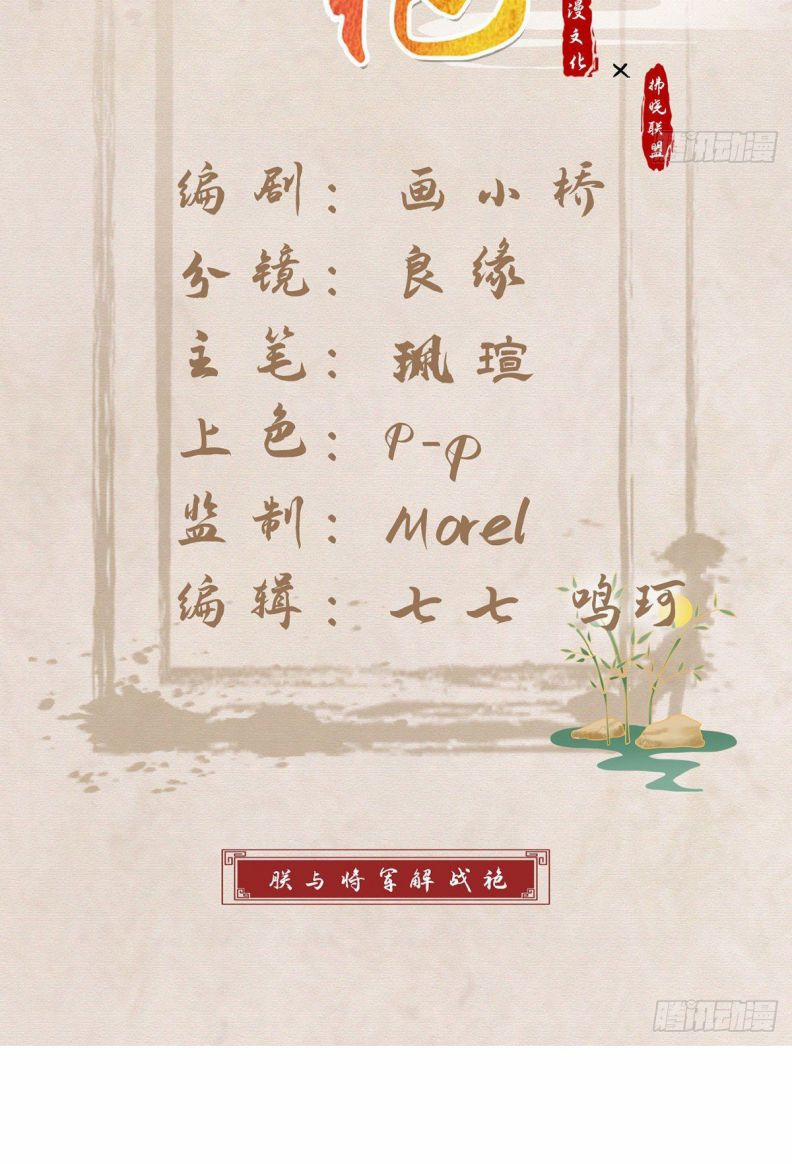 袍
漫文化
×
拂晓联盟
腾讯动漫
编剧：画小桥
分镜：良缘
主笔：珮瑄
上色：P-p
监制：Morel
编辑：七七 鸣珂
朕与将军解战袍
腾讯动漫